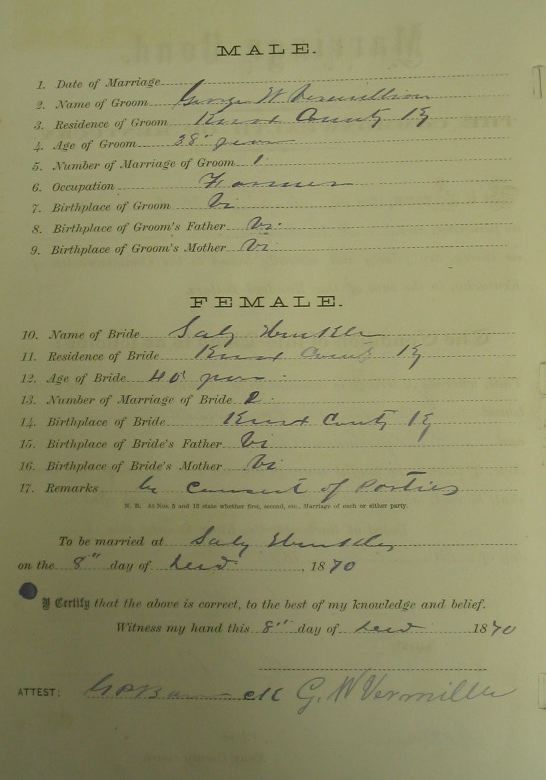 MALE.
1. Date of Marriage
2. Name of Groom George W Vermillion
3. Residence of Groom Knox County Ky
4. Age of Groom 38 years
5. Number of Marriage of Groom 1
6. Occupation Farmer
7. Birthplace of Groom Va
8. Birthplace of Groom's Father Va
9. Birthplace of Groom's Mother Va
FEMALE.
10. Name of Bride Saly
11. Residence of Bride Knox County Ky
12. Age of Bride 40 years
13. Number of Marriage of Bride 2
14. Birthplace of Bride Knox County Ky
15. Birthplace of Bride's Father Va
16. Birthplace of Bride's Mother Va
17. Remarks by consent of Parties
N. B. At Nos. 5 and 13 state whether first, second, etc., Marriage of each or either party.
To be married at Saly
on the 8" day of 1870
I Certify that the above is correct, to the best of my knowledge and belief.
Witness my hand this 8" day of 1870
ATTEST: clk G. W Vermillion